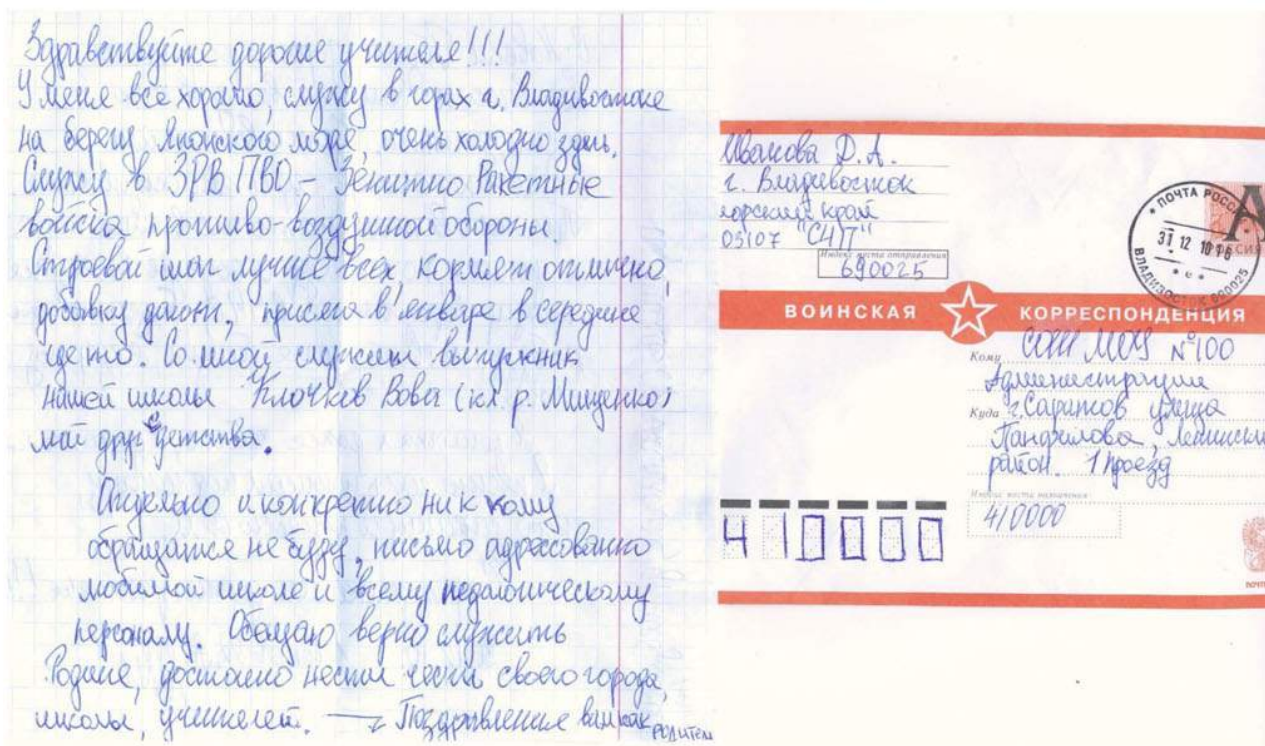 Здравствуйте дорогие учителя!!!
У меня всё хорошо, служу в горах г. Владивостоке
на берегу Японского моря, очень холодно здесь.
Служу в ЗРВ ПВО – Зенитно Ракетные
войска противо-воздушной обороны.
Строевой шаг лучше всех, кормят отлично,
добавку дают, присяга в январе в середине
где то. Со мной служит выпускник
нашей школы Клочков Вова (кл. р. Мищенко)
мой друг с детства.
Отдельно и конкретно ни к кому
обращатся не буду, письмо адрессованно
любимой школе и всему педагогическому
персоналу. Обещаю верно служить
Родине, достойно нести честь своего города,
школы, учителей. → Поздравление вам как родители
Иванова Д. А.
г. Владивосток
орский край
05107 "СЧП"
Индекс места отправления
690025
ПОЧТА РОССИИ
31 12 10 16
ВЛАДИВОСТОК 690025
А
РОССИЯ
ВОИНСКАЯ КОРРЕСПОНДЕНЦИЯ
Кому СОШ МОУ №100
Администрации
Куда г. Саратов улица
Панфилова, Ленински
район. 1 проезд
Индекс места назначения
410000
410000
ПОЧТ